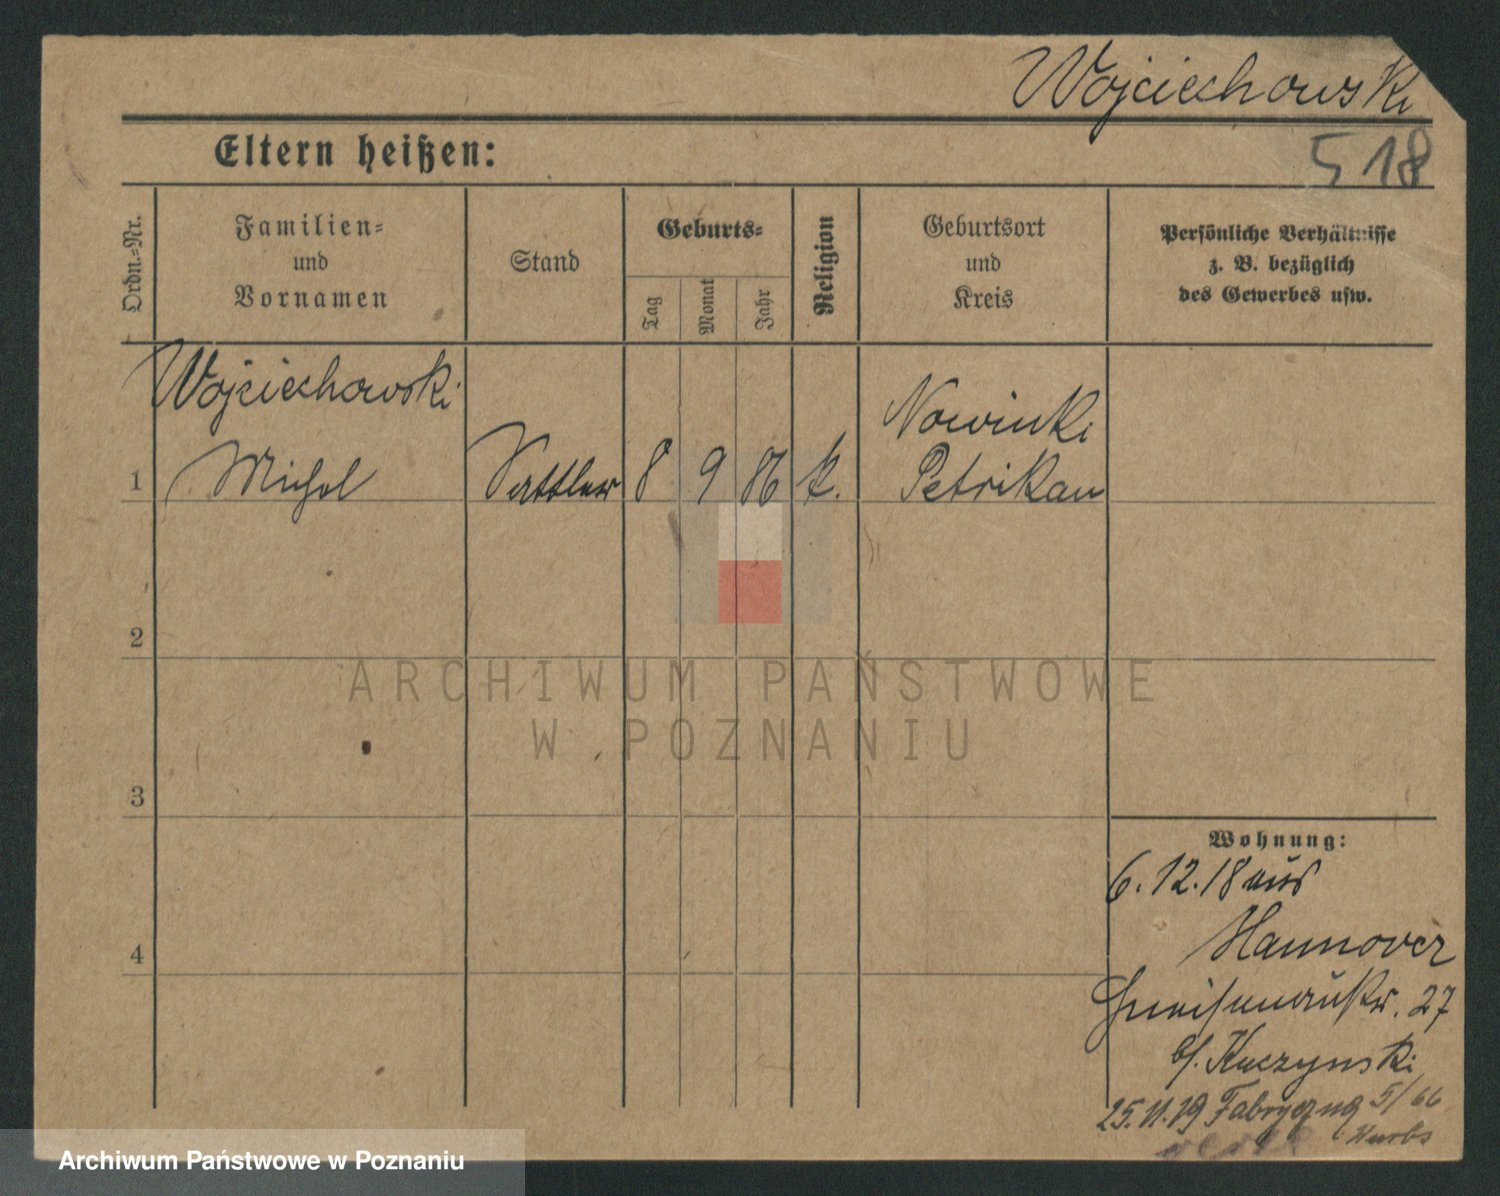 Wojciechowski
518
Eltern heißen:
Ordn.-Nr.
Familien-
und
Vornamen
Stand
Geburts-
Tag
Monat
Jahr
Religion
Geburtsort
und
Kreis
Persönliche Verhältnisse
z. B. bezüglich
des Gewerbes usw.
Wojciechowski
1 Michal Sattler 8 9 86 k.
Nowinki
Petrikau
2
3
4
Wohnung:
6.12.18 aus
Hannover
Gneisenaustr. 27
b/. Kuczynski
25.11.19 5/66
ARCHIWUM PAŃSTWOWE
W POZNANIU
Archiwum Państwowe w Poznaniu